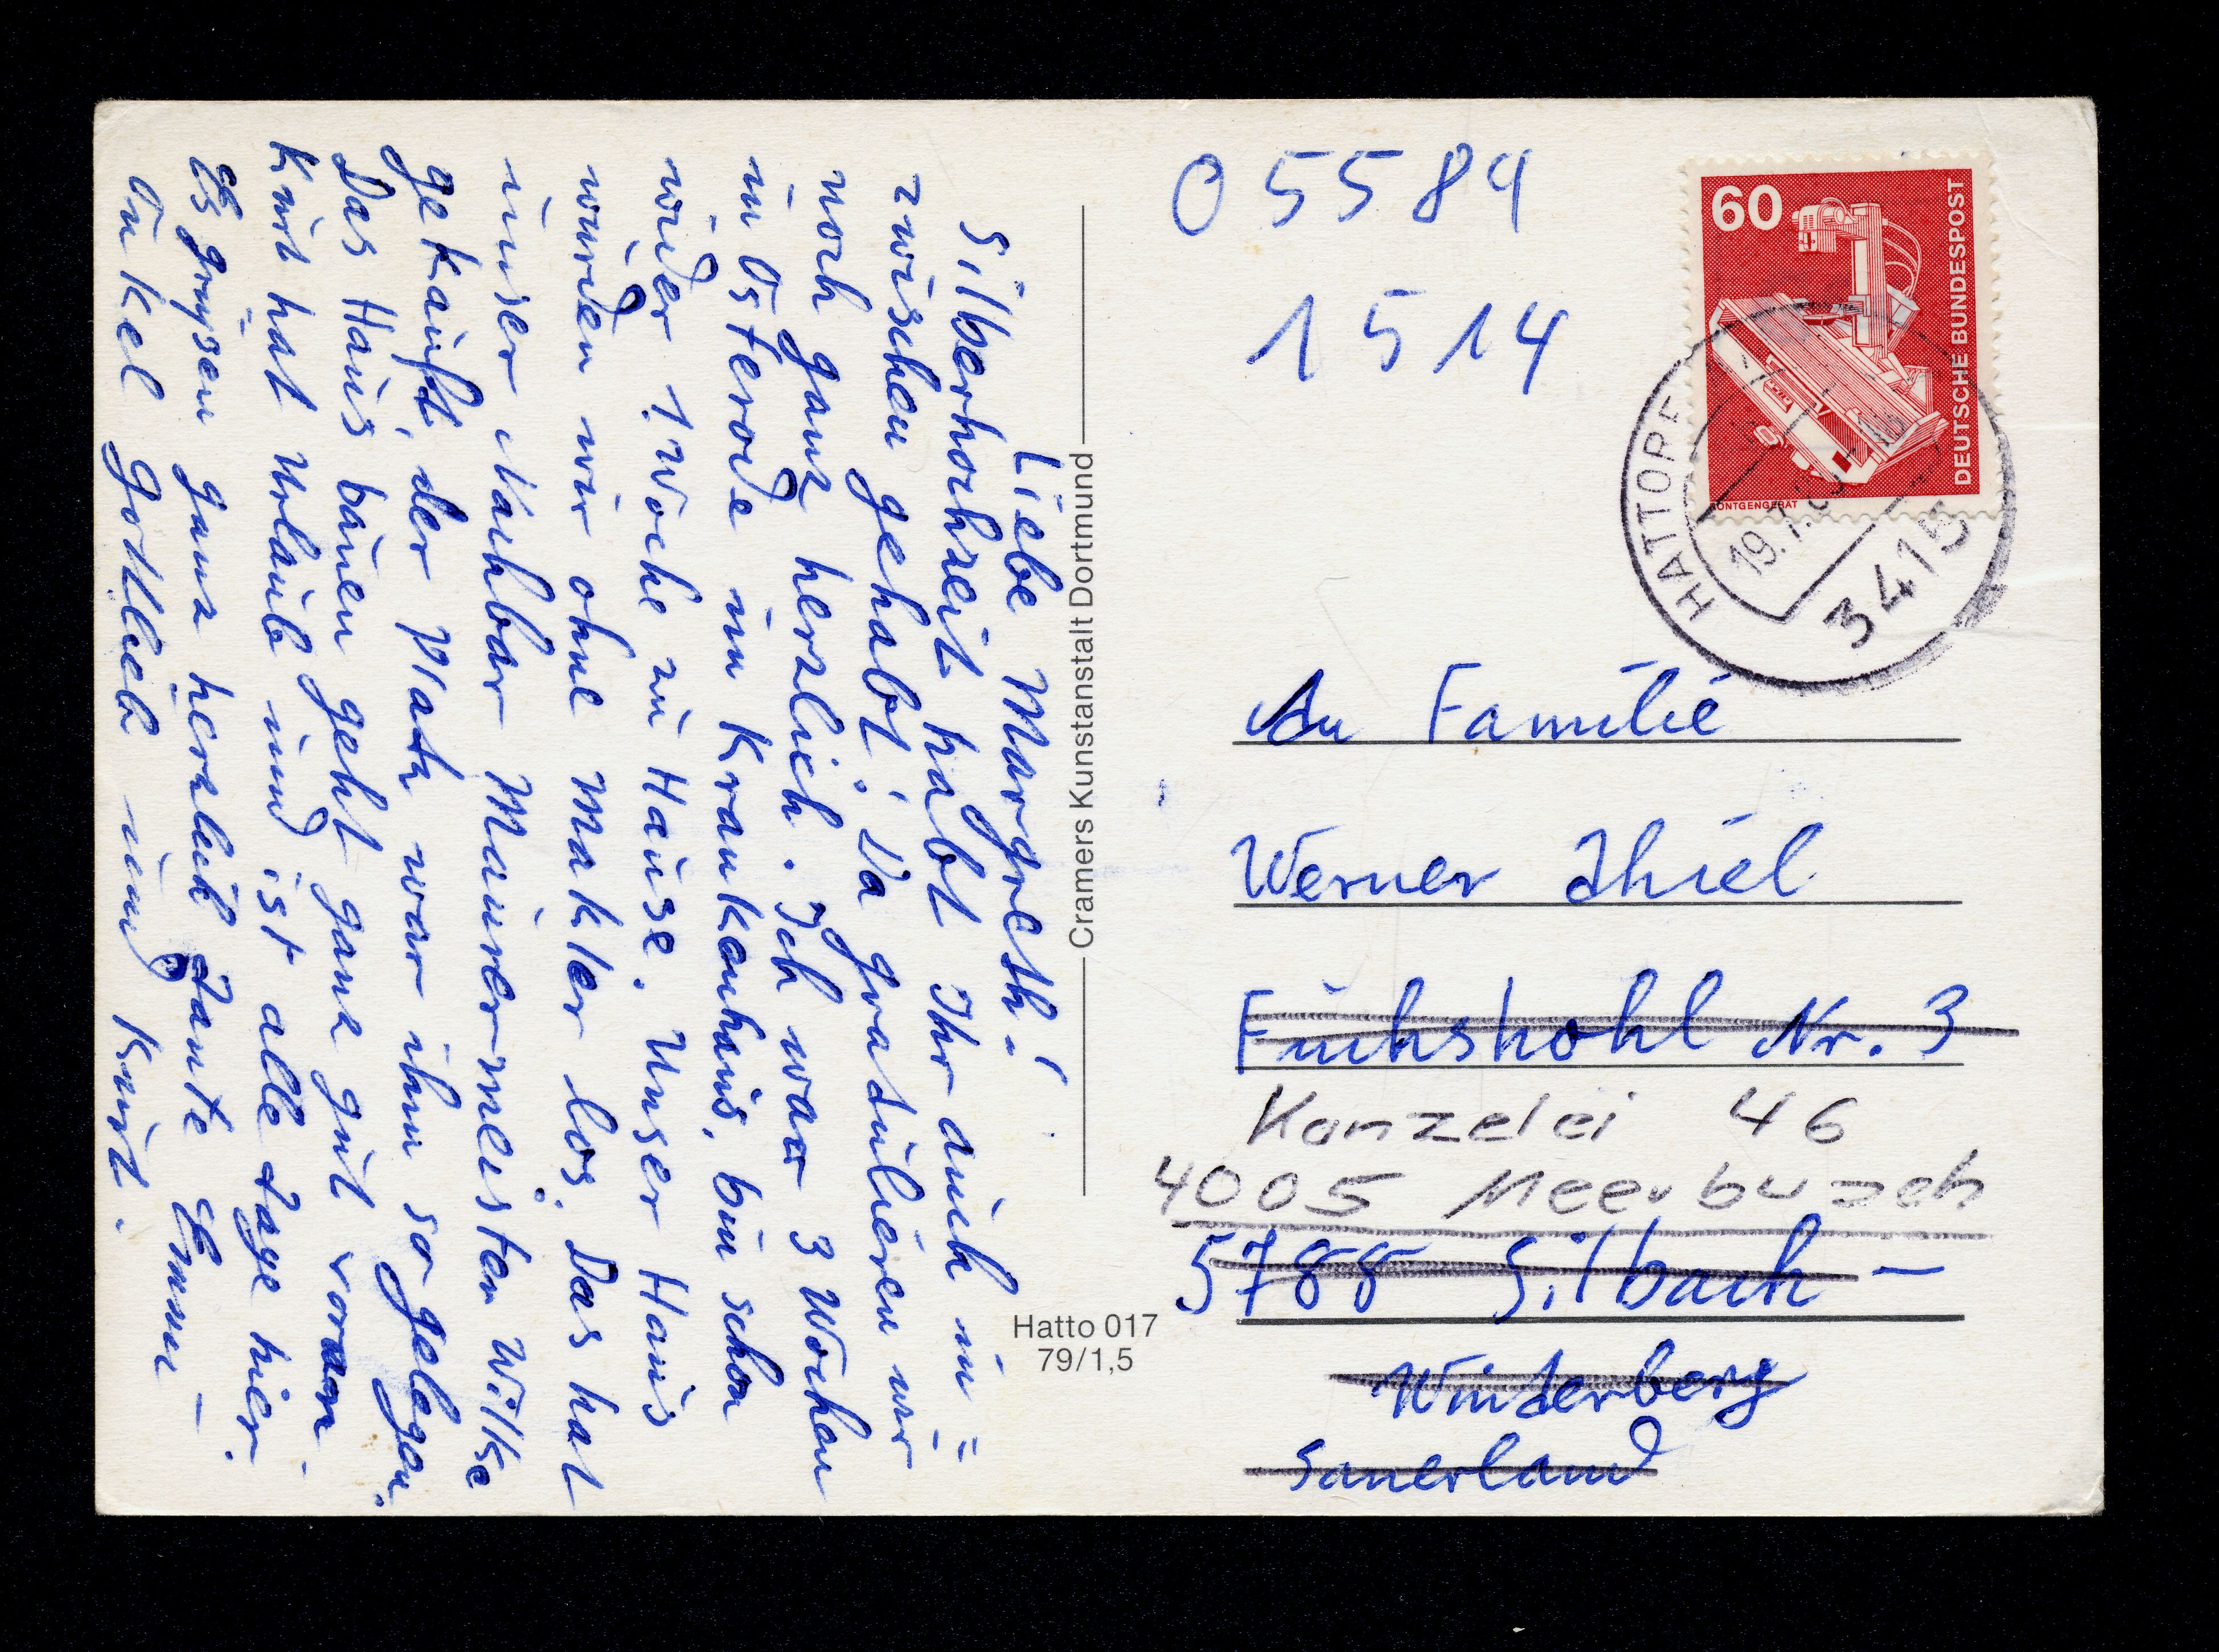 Liebe Margreth!
Silberhochzeit habt Ihr auch in=
zwischen gehabt. Da gratulieren wir
noch ganz herzlich. Ich war 3 Wochen
in Osterode im Krankenhaus, bin schon
wieder 1 Woche zu Hause. Unser Haus
wurden wir ohne Makler los. Das hat
unser Nachbar Maurermeister Wilke
gekauft, der Platz war ihm so gelegen.
Das Haus bauen geht ganz gut voran.
Kurt hat Urlaub und ist alle Tage hier.
Es grüßen ganz herzlich Tante Emmi –
Onkel Gottlieb und Kurt.
Cramers Kunstanstalt Dortmund
Hatto 017
79/1,5
05584
1514
60
DEUTSCHE BUNDESPOST
RÖNTGENGERÄT
HATTORF
19.7.
3415
An Familie
Werner Thiel
Fuchshohl Nr. 3
Kanzelei 46
4005 Meerbusch
5788 Silbach –
Winterberg
Sauerland